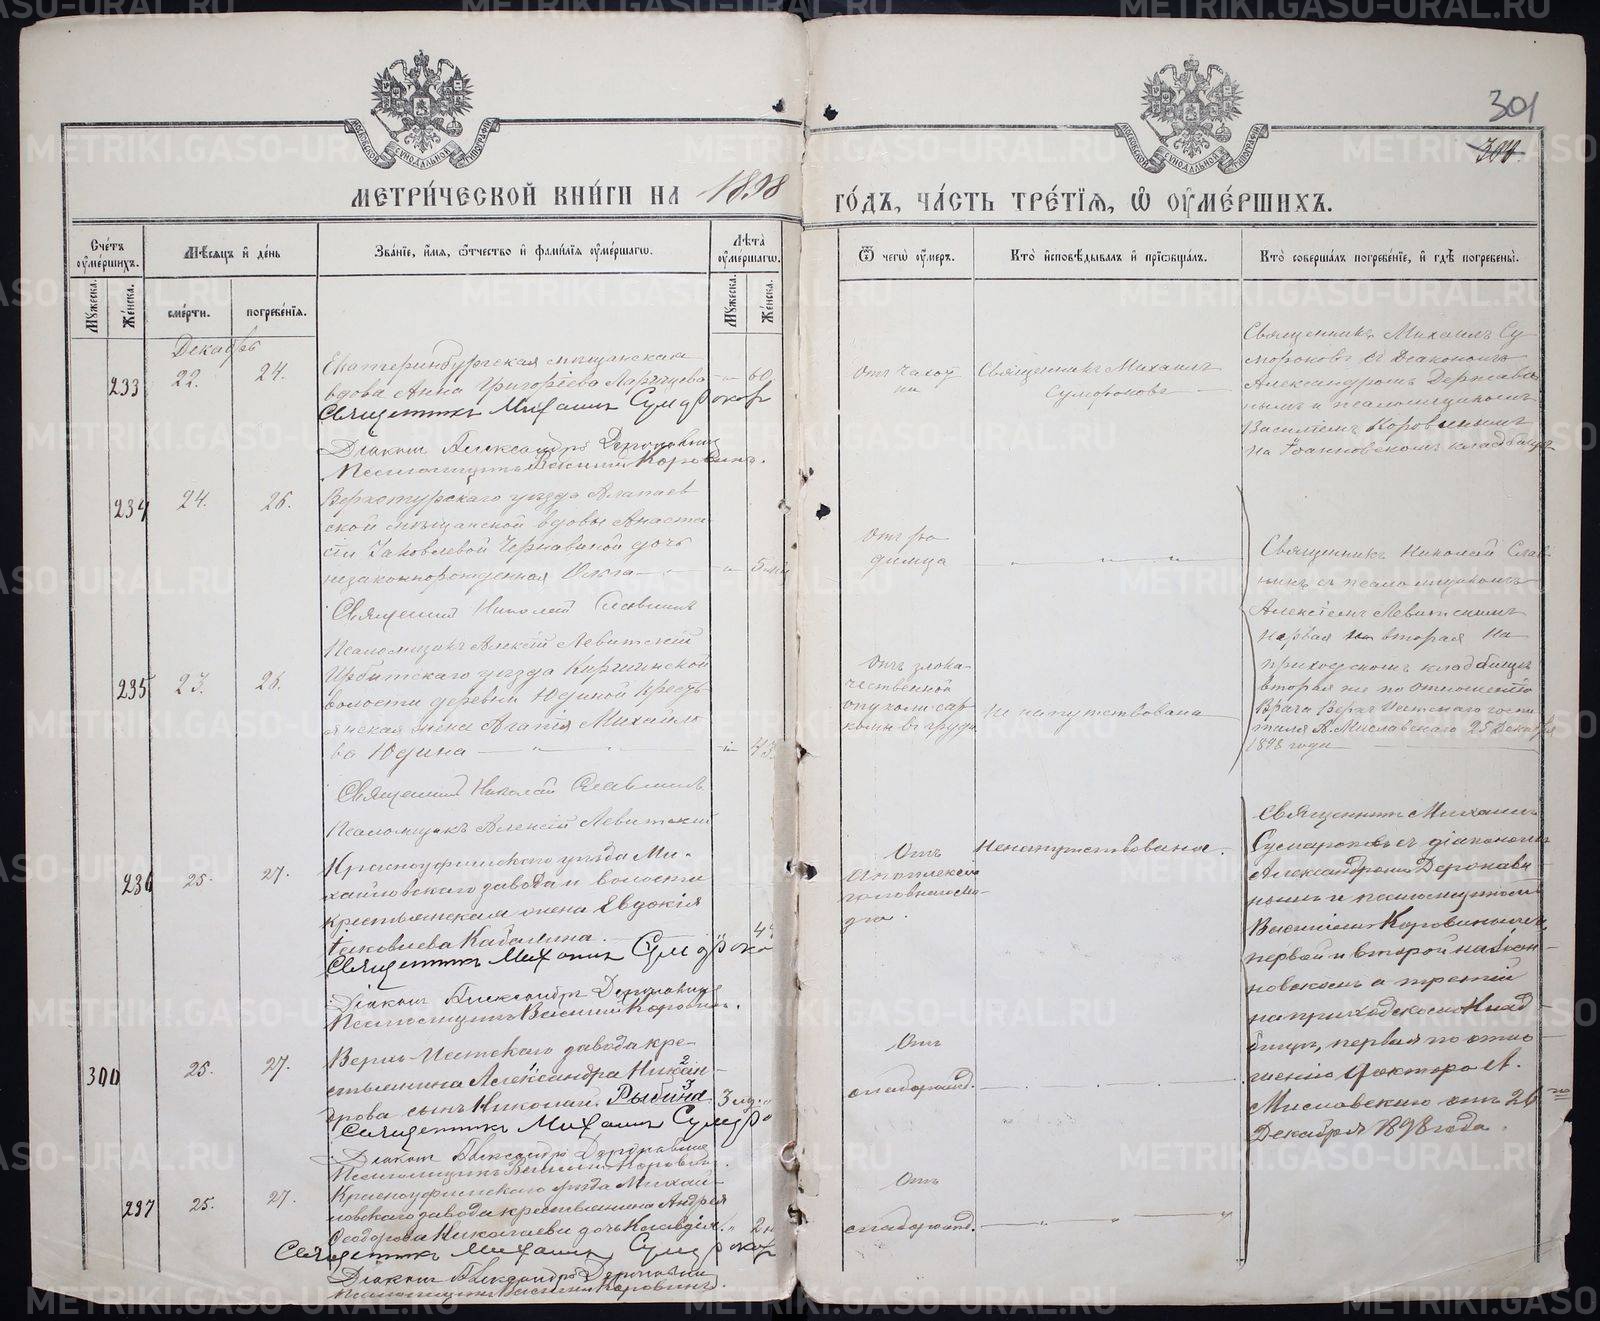 301
300.
МЕТРИ́ЧЕСКОЙ КНИ́ГИ НА 1898 ГО́ДЪ, ЧА́СТЬ ТРЕ́ТІѦ, Ѡ҆ ОУ҆МЕ́РШИХЪ.
Сче́тъ оу҆ме́ршихъ.
Мѣ́сяцъ и҆ де́нь
Зва́нїе, и҆́мя, ѻ҆́тчество и҆ фами́лїя оу҆ме́ршагѡ.
Лѣ́та оу҆ме́ршагѡ.
Ѿ чегѡ̀ оу҆́меръ.
Кто̀ и҆сповѣ́дывалъ и҆ прїѡбща́лъ.
Кто̀ соверша́лъ погребе́нїе, и҆ гдѣ̀ погребены̀.
Мꙋ́жеска.
Же́нска.
сме́рти.
погребе́нїѧ.
Мꙋ́жеска.
Же́нска.
Декабрь
233
22.
24.
Екатеринбургская мѣщанская
вдова Анна Григоріева
60
Священникъ Михаилъ
Діаконъ Александръ Державинъ
Псаломщикъ Василій Коровинъ.
Отъ чахот
ки
Священникъ Михаилъ
Сумароковъ
Священникъ Михаилъ Су
мороковъ съ Діакономъ
Александромъ Держави
нымъ и псаломщикомъ
Василіемъ Коровинымъ
на Іоанновскомъ кладбищѣ
234
24.
26.
Верхотурскаго уѣзда Алапаев
ской мѣщанской вдовы Анаста
сіи Іаковлевой Чернавиной дочь
незаконнорожденная Ольга
5
Священникъ Николай Славнинъ
Псаломщикъ Алексій Левитскій
Отъ ро
димца
Священникъ Николай Слав
нинъ съ псаломщикомъ
Алексіемъ Левитскимъ
первая и вторая на
приходскомъ кладбищѣ
вторая же по отношенію
Врача Верхъ Исетскаго госпи
таля А. Миславскаго 25 Декабря
1898 года
235
23.
26.
Ирбитскаго уѣзда Киргинской
волости деревни Юдиной кресть
янская жена Агапія Михайло
ва Юдина
43
Священникъ Николай Славнинъ
Псаломщикъ Алексій Левитскій
Отъ злока-
чественной
опухоли сар
комы въ груди
Не напутствована
236
25.
27.
Красноуфимскаго уѣзда Ми-
хайловскаго завода и волости
крестьянская жена Евдокія
Іаковлева
Священникъ Михаилъ
Діаконъ Александръ Державинъ
Псаломщикъ Василій Коровинъ.
Отъ
апоплексіи
головнаго мо-
зга.
Ненапутствована.
Священникъ Михаилъ
Сумароковъ съ діакономъ
Александромъ Держави-
нымъ и псаломщикомъ
Василіемъ Коровинымъ,
первой и второй на Іоан-
новскомъ а третій
на приходскомъ клад-
бищѣ, первая по отно-
шенію доктора А.
Миславскаго отъ 26
Декабря 1898 года.
300
25.
27.
Верхъ-Исетскаго завода кре-
стьянина Александра Никан-
дрова сынъ Николай. Рыбина
3
Священникъ Михаилъ
Діаконъ Александръ Державинъ
Псаломщикъ Василій Коровинъ.
Отъ
слаборожд.
237
25.
27.
Красноуфимскаго уѣзда Михай-
ловскаго завода крестьянина Андрея
Ѳеодорова Николаева дочь Клавдія.
2
Священникъ Михаилъ
Діаконъ Александръ Державинъ
Псаломщикъ Василій Коровинъ.
Отъ
слаборожд.
METRIKI.GASO-URAL.RU